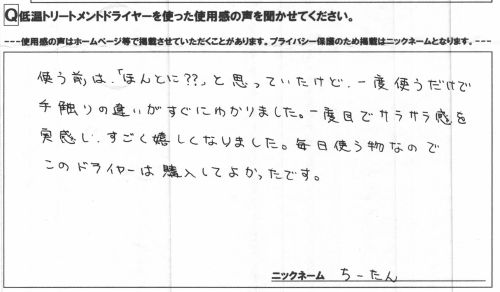 Q低温トリートメントドライヤーを使った使用感の声を聞かせてください。
---使用感の声はホームページ等で掲載させていただくことがあります。プライバシー保護のため掲載はニックネームとなります。---
使う前は、「ほんとに??」と思っていたけど、一度使うだけで
手触りの違いがすぐにわかりました。一度目でサラサラ感を
実感し、すごく嬉しくなりました。毎日使う物なので
このドライヤーは購入してよかったです。
ニックネーム ちーたん